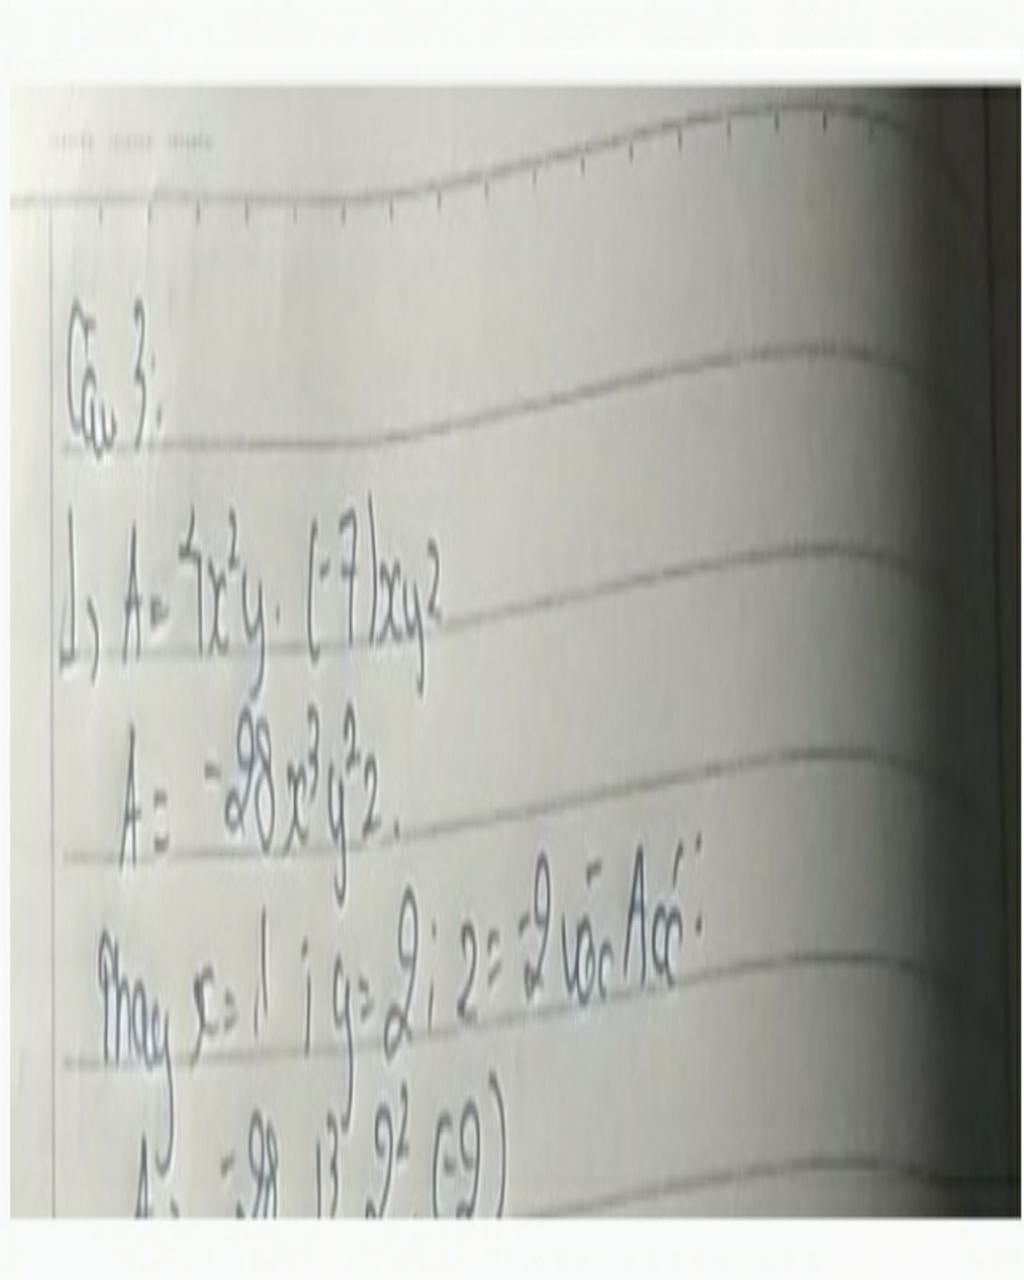 Câu 3:
1, A = 4x²y. (-7)xyz
A = -28x³y²z.
Thay x = 1 ; y = 2 ; z = -2 vào A có:
A = -28. 1³. 2². (-2)